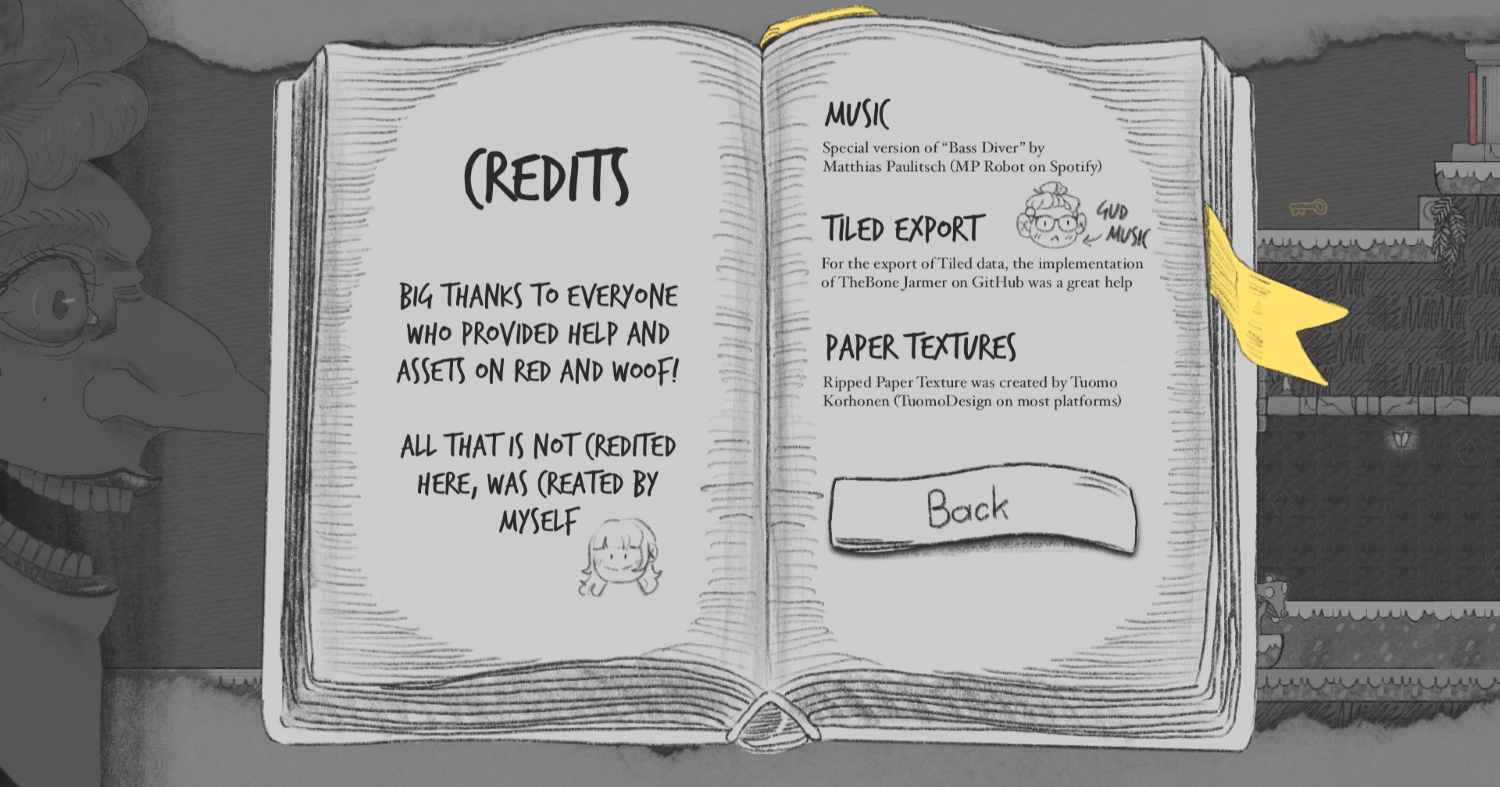 CREDITS
BIG THANKS TO EVERYONE
WHO PROVIDED HELP AND
ASSETS ON RED AND WOOF!
ALL THAT IS NOT CREDITED
HERE, WAS CREATED BY
MYSELF
MUSIC
Special version of “Bass Diver” by
Matthias Paulitsch (MP Robot on Spotify)
GUD
MUSIC
TILED EXPORT
For the export of Tiled data, the implementation
of TheBone Jarmer on GitHub was a great help
PAPER TEXTURES
Ripped Paper Texture was created by Tuomo
Korhonen (TuomoDesign on most platforms)
Back